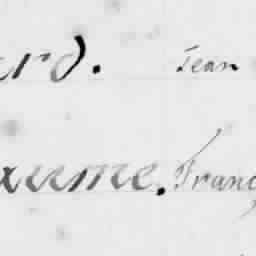 ard. Jean
axume. Franç